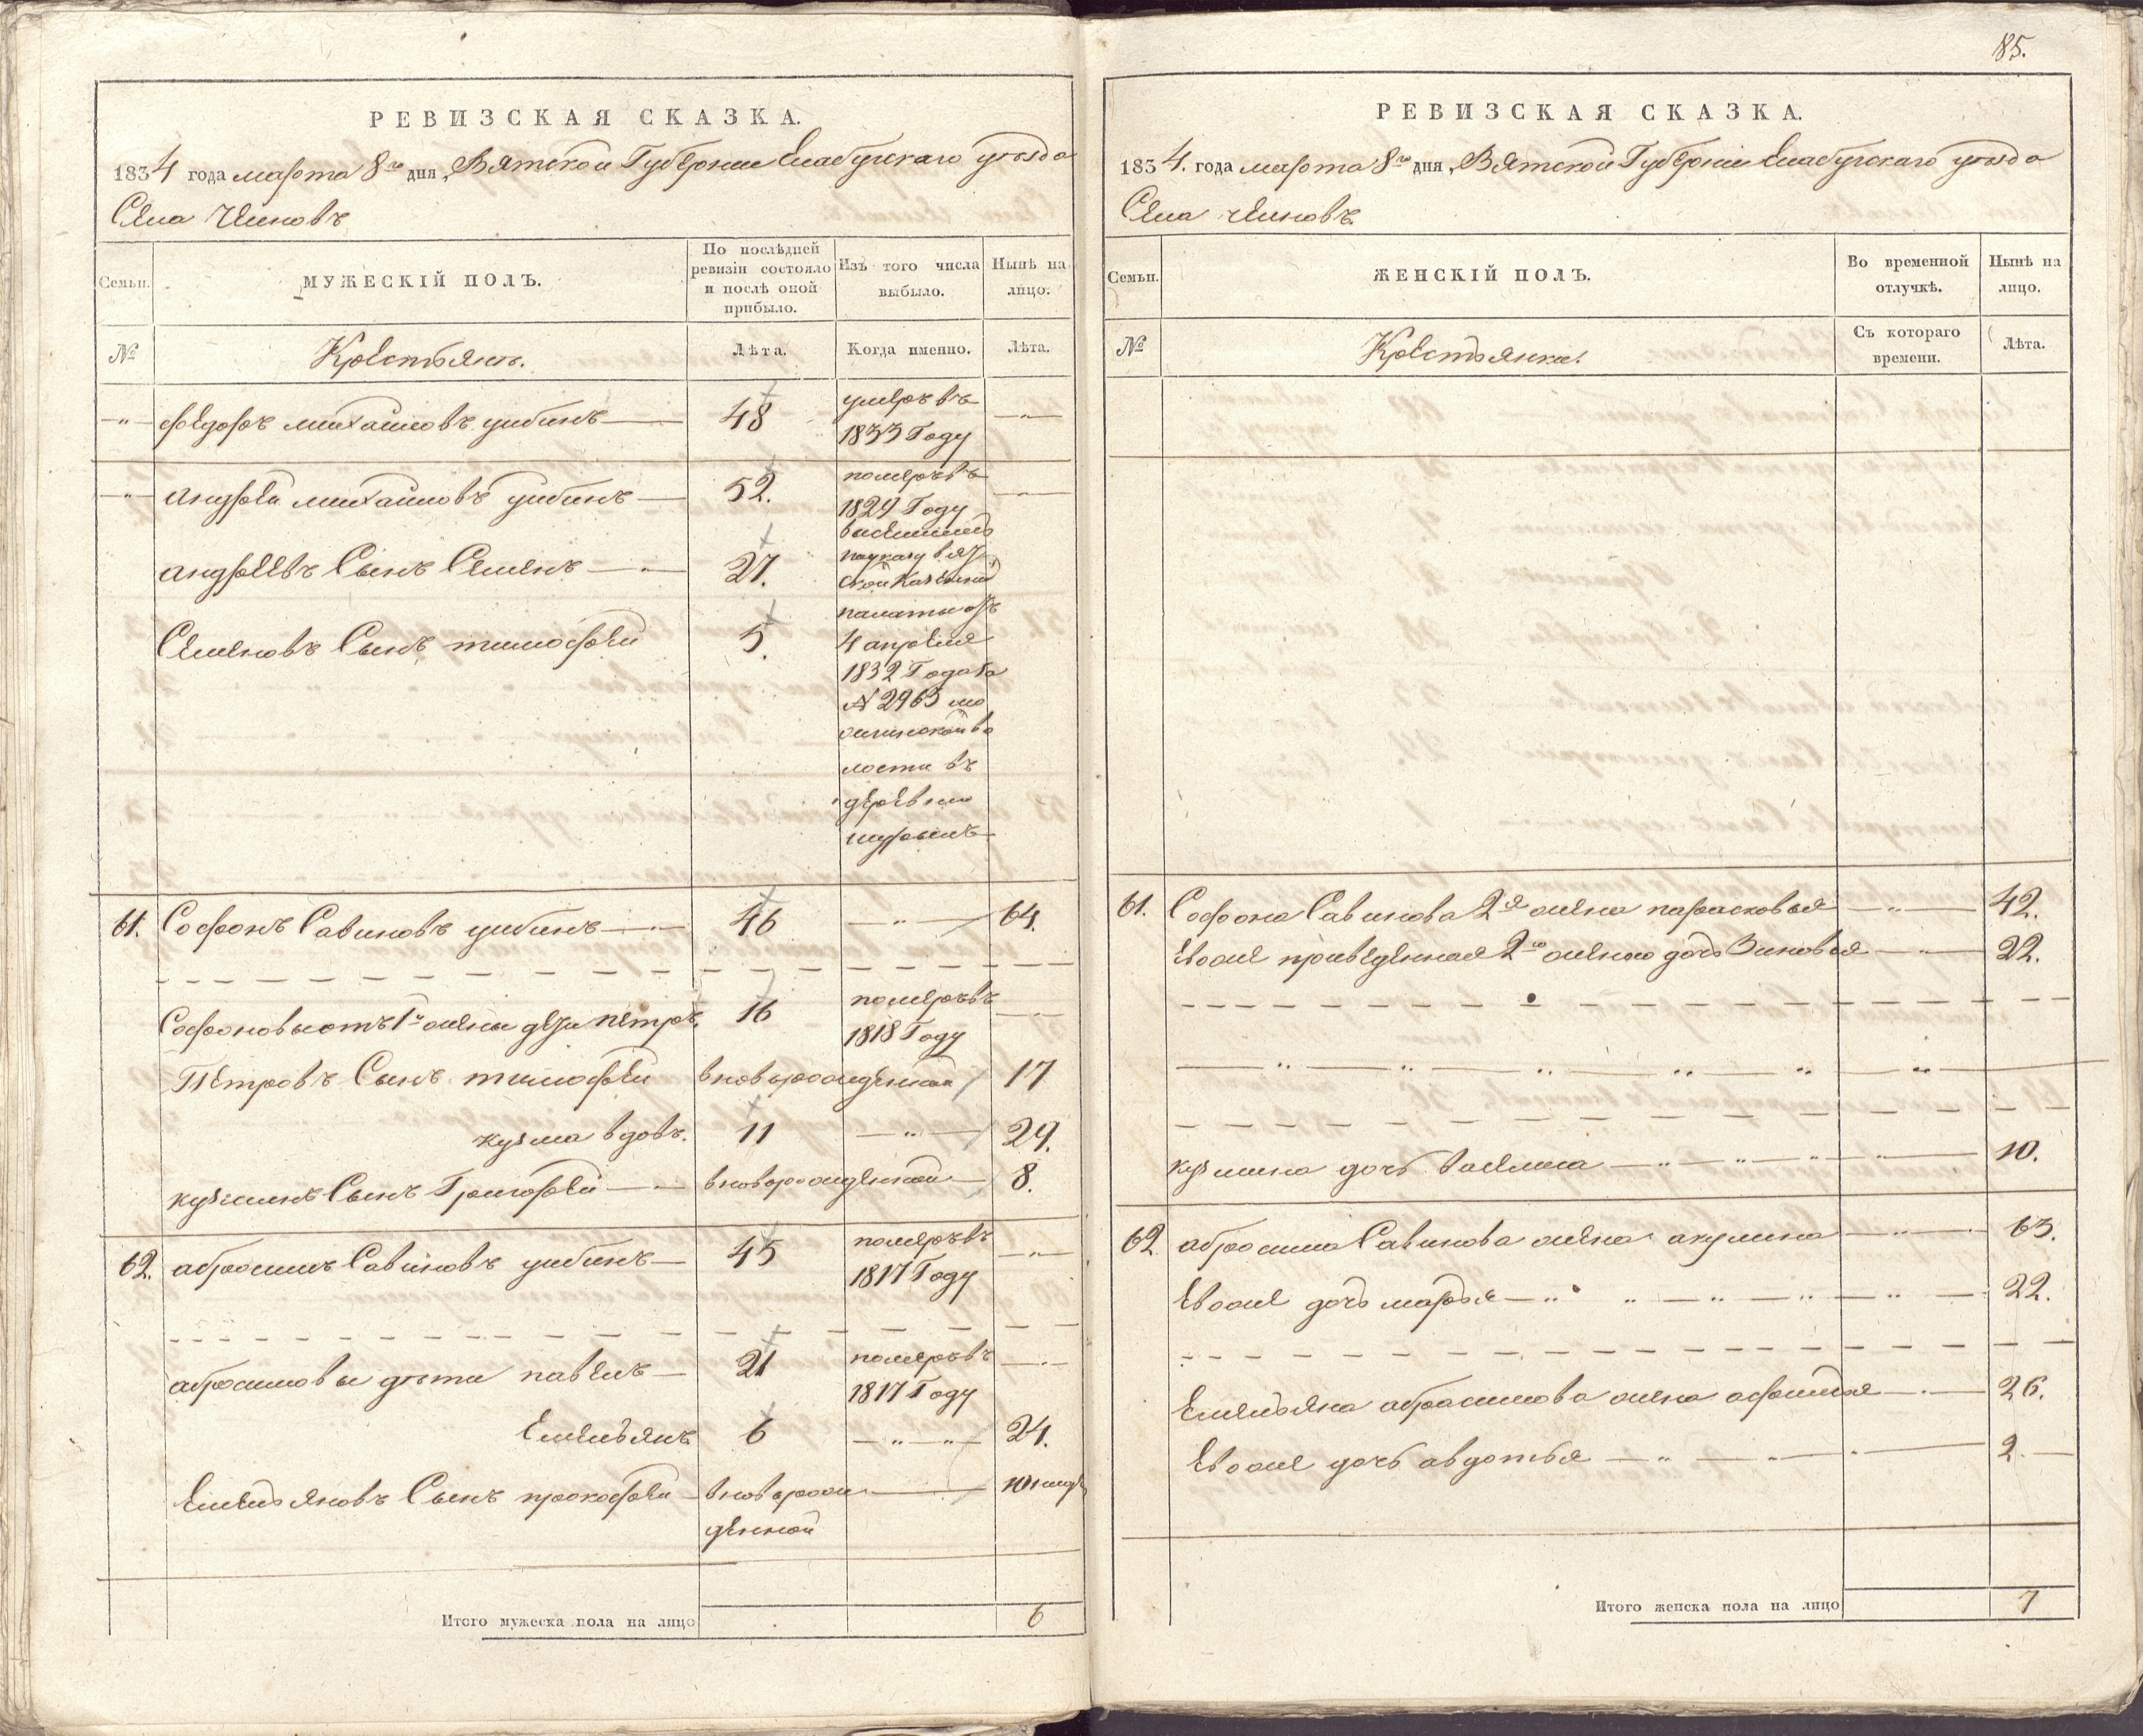 РЕВИЗСКАЯ СКАЗКА.
1834 года марта 8го дня, Вятской Губернии Елабугскаго уезда
Села
Семьи.
МУЖЕСКІЙ ПОЛЪ.
По послѣдней ревизіи состояло и послѣ оной прибыло.
Изъ того числа выбыло.
Нынѣ на лицо.
№
Крестьянъ.
Лѣта.
Когда именно.
Лѣта.
федоръ михаиловъ 48 умеръ въ
1833 Году
андрей михаиловъ 52. померъ въ
1829 Году
андреевъ Сынъ Семенъ 27.
по указу вят
ской казенной
Семеновъ Сынъ тимофей 5.
палаты отъ
4 апреля
1832 Года за
№ 2963
волости въ
деревню
61. Софронъ Савиновъ 46 64.
Софроновы отъ 1й жены дети петръ. 16 померъ въ
1818 Году
Петровъ Сынъ тимофей вноворожденной 17
кузма вдовъ. 11 29.
кузминъ Сынъ Григорей вноворожденной 8.
62. абросимъ Савиновъ 45 померъ въ
1817 Году
абросимовы дети павелъ 21 померъ въ
1817 Году
Емельянъ 6 24.
Емельяновъ Сынъ прокофей вноворож
денной
Итого мужеска пола на лицо 6
85.
РЕВИЗСКАЯ СКАЗКА.
1834. года марта 8го дня, Вятской Губернии Елабугскаго уезда
Села
Семьи.
ЖЕНСКІЙ ПОЛЪ.
Во временной отлучкѣ.
Нынѣ на лицо.
№
Крестьянки.
Съ котораго времени.
Лѣта.
61. Софрона Савинова 2я жена парасковья 42.
Ево же приведенная 2ю женою дочь Зиновья 22.
кузмина дочь василиса 10.
62 абросима Савинова жена акулина 63.
Ево же дочь марья 22.
Емельяна абрасимова жена афимья 26.
Ево же дочь авдотья 2.
Итого женска пола на лицо 7